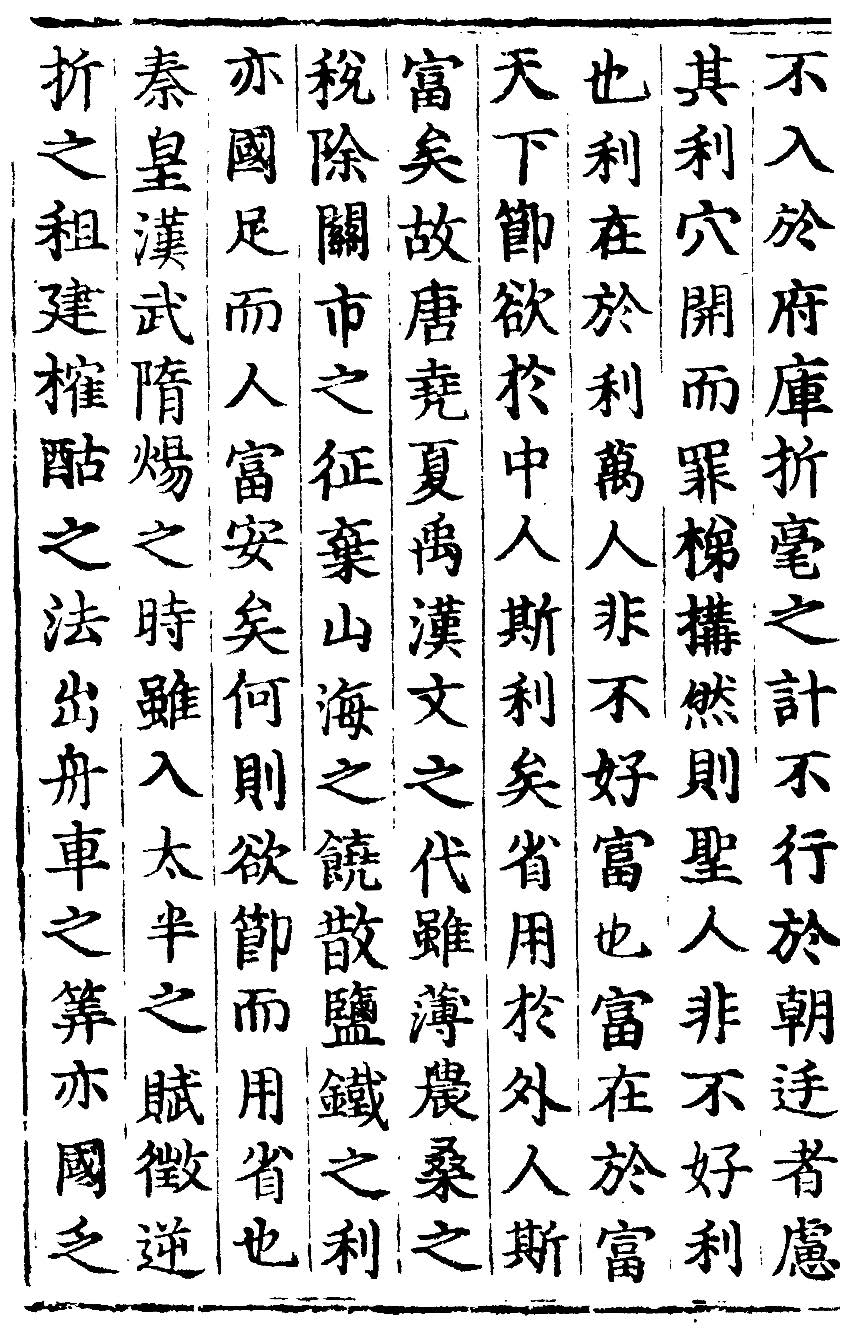 不入於府庫折毫之計不行於朝迋者慮
其利穴開而罪梯搆然則聖人非不好利
也利在於利萬人非不好富也富在於富
天下節欲於中人斯利矣省用於外人斯
富矣故唐堯夏禹漢文之代雖薄農桑之
稅除關市之征棄山海之饒散鹽鐵之利
亦國足而人富安矣何則欲節而用省也
秦皇漢武隋煬之時雖入太半之賦徵逆
折之租建榷酤之法出舟車之筭亦國乏